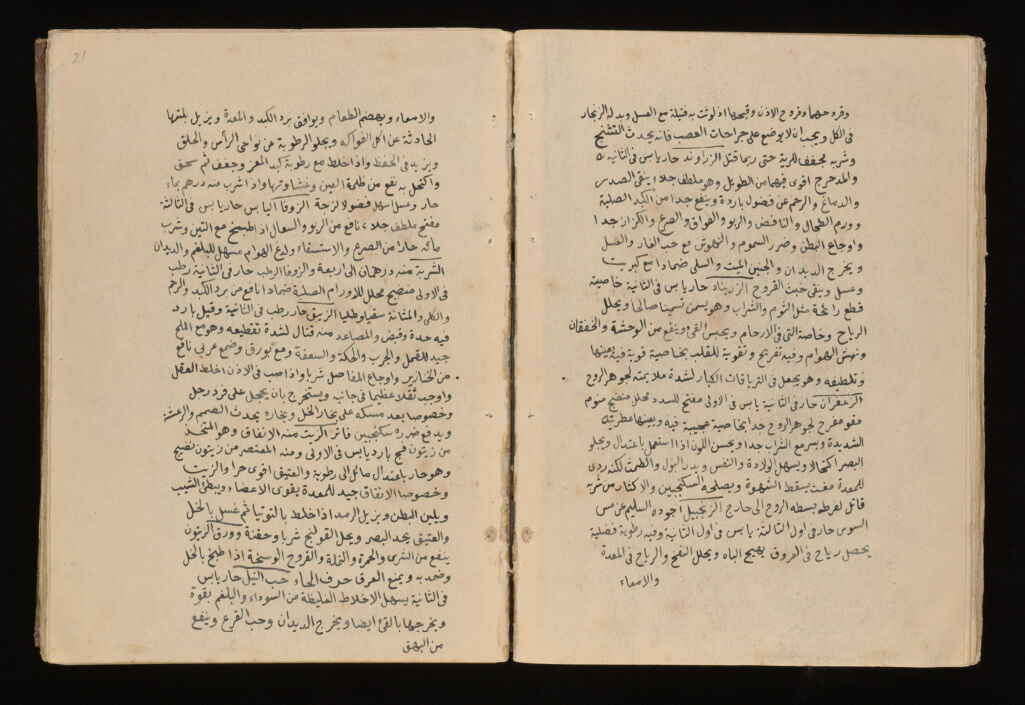 وقروحهما وقروح الاذن وقيحها اذ لوثت به فتيلة مع العسل وبدله الزنجار
فى الكل ويجب ان لا يوضع على جراحات العصب فانه يحدث التشنج
وشربه مجفف للرية حتى ربما قتل الزراوند حار يابس فى الثانية
والمدحرج اقوى فيهما من الطويل وهو ملطف جلاء ينقى الصدر
والدماغ والرحم عن فضول باردة وينفع جدا من الكبد الصلبة
وورم الطحال والنافض والربو والفواق والصرع والكزاز جدا
واوجاع البطن وضرر السموم والنهوش مع حب الغار والعسل
ويخرج الديدان والجنين الميت والسلى ضمادا مع كبريت
وعسل وينقى خبث القروح الزرنباد حار يابس فى الثانية خاصيته
قطع رائحة مثل الثوم والشراب وهو يسمن تسمينا صالحا ويحلل
الرياح وخاصة التى فى الارحام ويحبس القئ وينفع من الوحشة والخفقان
ونهش الهوام وفيه تفريح وتقوية للقلب بخاصية قوية فيه يعينها
وتلطيفه وهو يجعل فى الترياقات الكبار لشدة ملايمته لجوهر الروح
الزعفران حار فى الثانية يابس فى الاولى مفتح للسدد محلل منضج منوم
مقو مفرح لجوهر الروح جدا بخاصية عجيبة فيه ويعينها عطريته
الشديدة ويسر مع الشراب جدا ويحسن اللون اذا استعمل باعتدال ويجلو
البصر اكتحالا ويسهل الولادة والنفس ويدر البول والطمث لكنه ردى
للمعدة مغث يسقط الشهوة ويصلحه السكنجبين والاكثار من شربه
قاتل لفرطه بسطه الروح الى خارج الزنجبيل اجوده السليم عن مس
السوس حار فى اول الثالثة يابس فى اول الثانية وفيه رطوبة فضلية
يحصل رياح فى العروق يهيج الباه ويحلل النفخ والرياح فى المعدة
والامعاء
21
والامعاء ويهضم الطعام ويوافق برد الكبد والمعدة ويزيل بلتها
الحادثة عن اكل الفواكه ويجلو الرطوبة عن نواحى الرأس والحلق
ويزيد فى الحفظ واذا خلط مع رطوبة كبد المعز وجفف ثم سحق
واكتحل به نفع من ظلمة العين وغشاوتها واذا شرب منه درهم بماء
حار وعسل اسهل فضولا لزجة الزوفا اليابس حار يابس فى الثالثة
مفتح ملطف جلاء نافع من الربو والسعال اذا طبخ مع التين وشرب
مائه حارا من الصرع والاستسقاء ولدغ الهوام مسهل للبلغم والديدان
الشربة منه درهمان الى اربعة والزوفا الرطب حار فى الثانية رطب
فى الاولى منضج محلل للاورام الصلبة ضمادا نافع من برد الكبد والرحم
والكلى والمثانة سقيا وطليا الزيبق حار رطب فى الثانية وقيل بارد
فيه حدة وقبض والمصاعد منه قتال لشدة تقطيعه وهو مع الملح
جيد للقمل والجرب والحكة والسعفة ومع بورق وصمغ عربى نافع
من الخنازير واوجاع المفاصل شربا واذا صب فى الاذن اخلط العقل
واوجب ثقلا عظيما فى جانبه ويستخرج بان يحجل على فرد رجل
وخصوصا بعد مسكه على بخار الخل وبخاره يحدث الصمم والرعشة
ويدفع ضرره سكنجبين فاتر الزيت منه الانفاق وهو المتخذ
من زيتون فج بارد يابس فى الاولى ومنه المعتصر من زيتون نضيج
وهو حار باعتدال مائل الى رطوبة والعتيق اقوى حرا والزيت
وخصوصا الانفاق جيد للمعدة يقوى الاعضاء ويبطئ الشيب
ويلين البطن ويزيل الرمد اذا خلط بالتوتيا ثم غسل بالخل
والعتيق يحد البصر ويحل القولنج شربا وحقنة وورق الزيتون
ينفع من الشرى والحمرة والنملة والقروح الوسخة اذا طبخ بالخل
وضمد به ويمنع العرق حرف الحاء حب النيل حار يابس
فى الثانية يسهل الاخلاط الغليظة من السوداء والبلغم بقوة
ويخرجها بالقئ ايضا ويخرج الديدان وحب القرع وينفع
من البهق